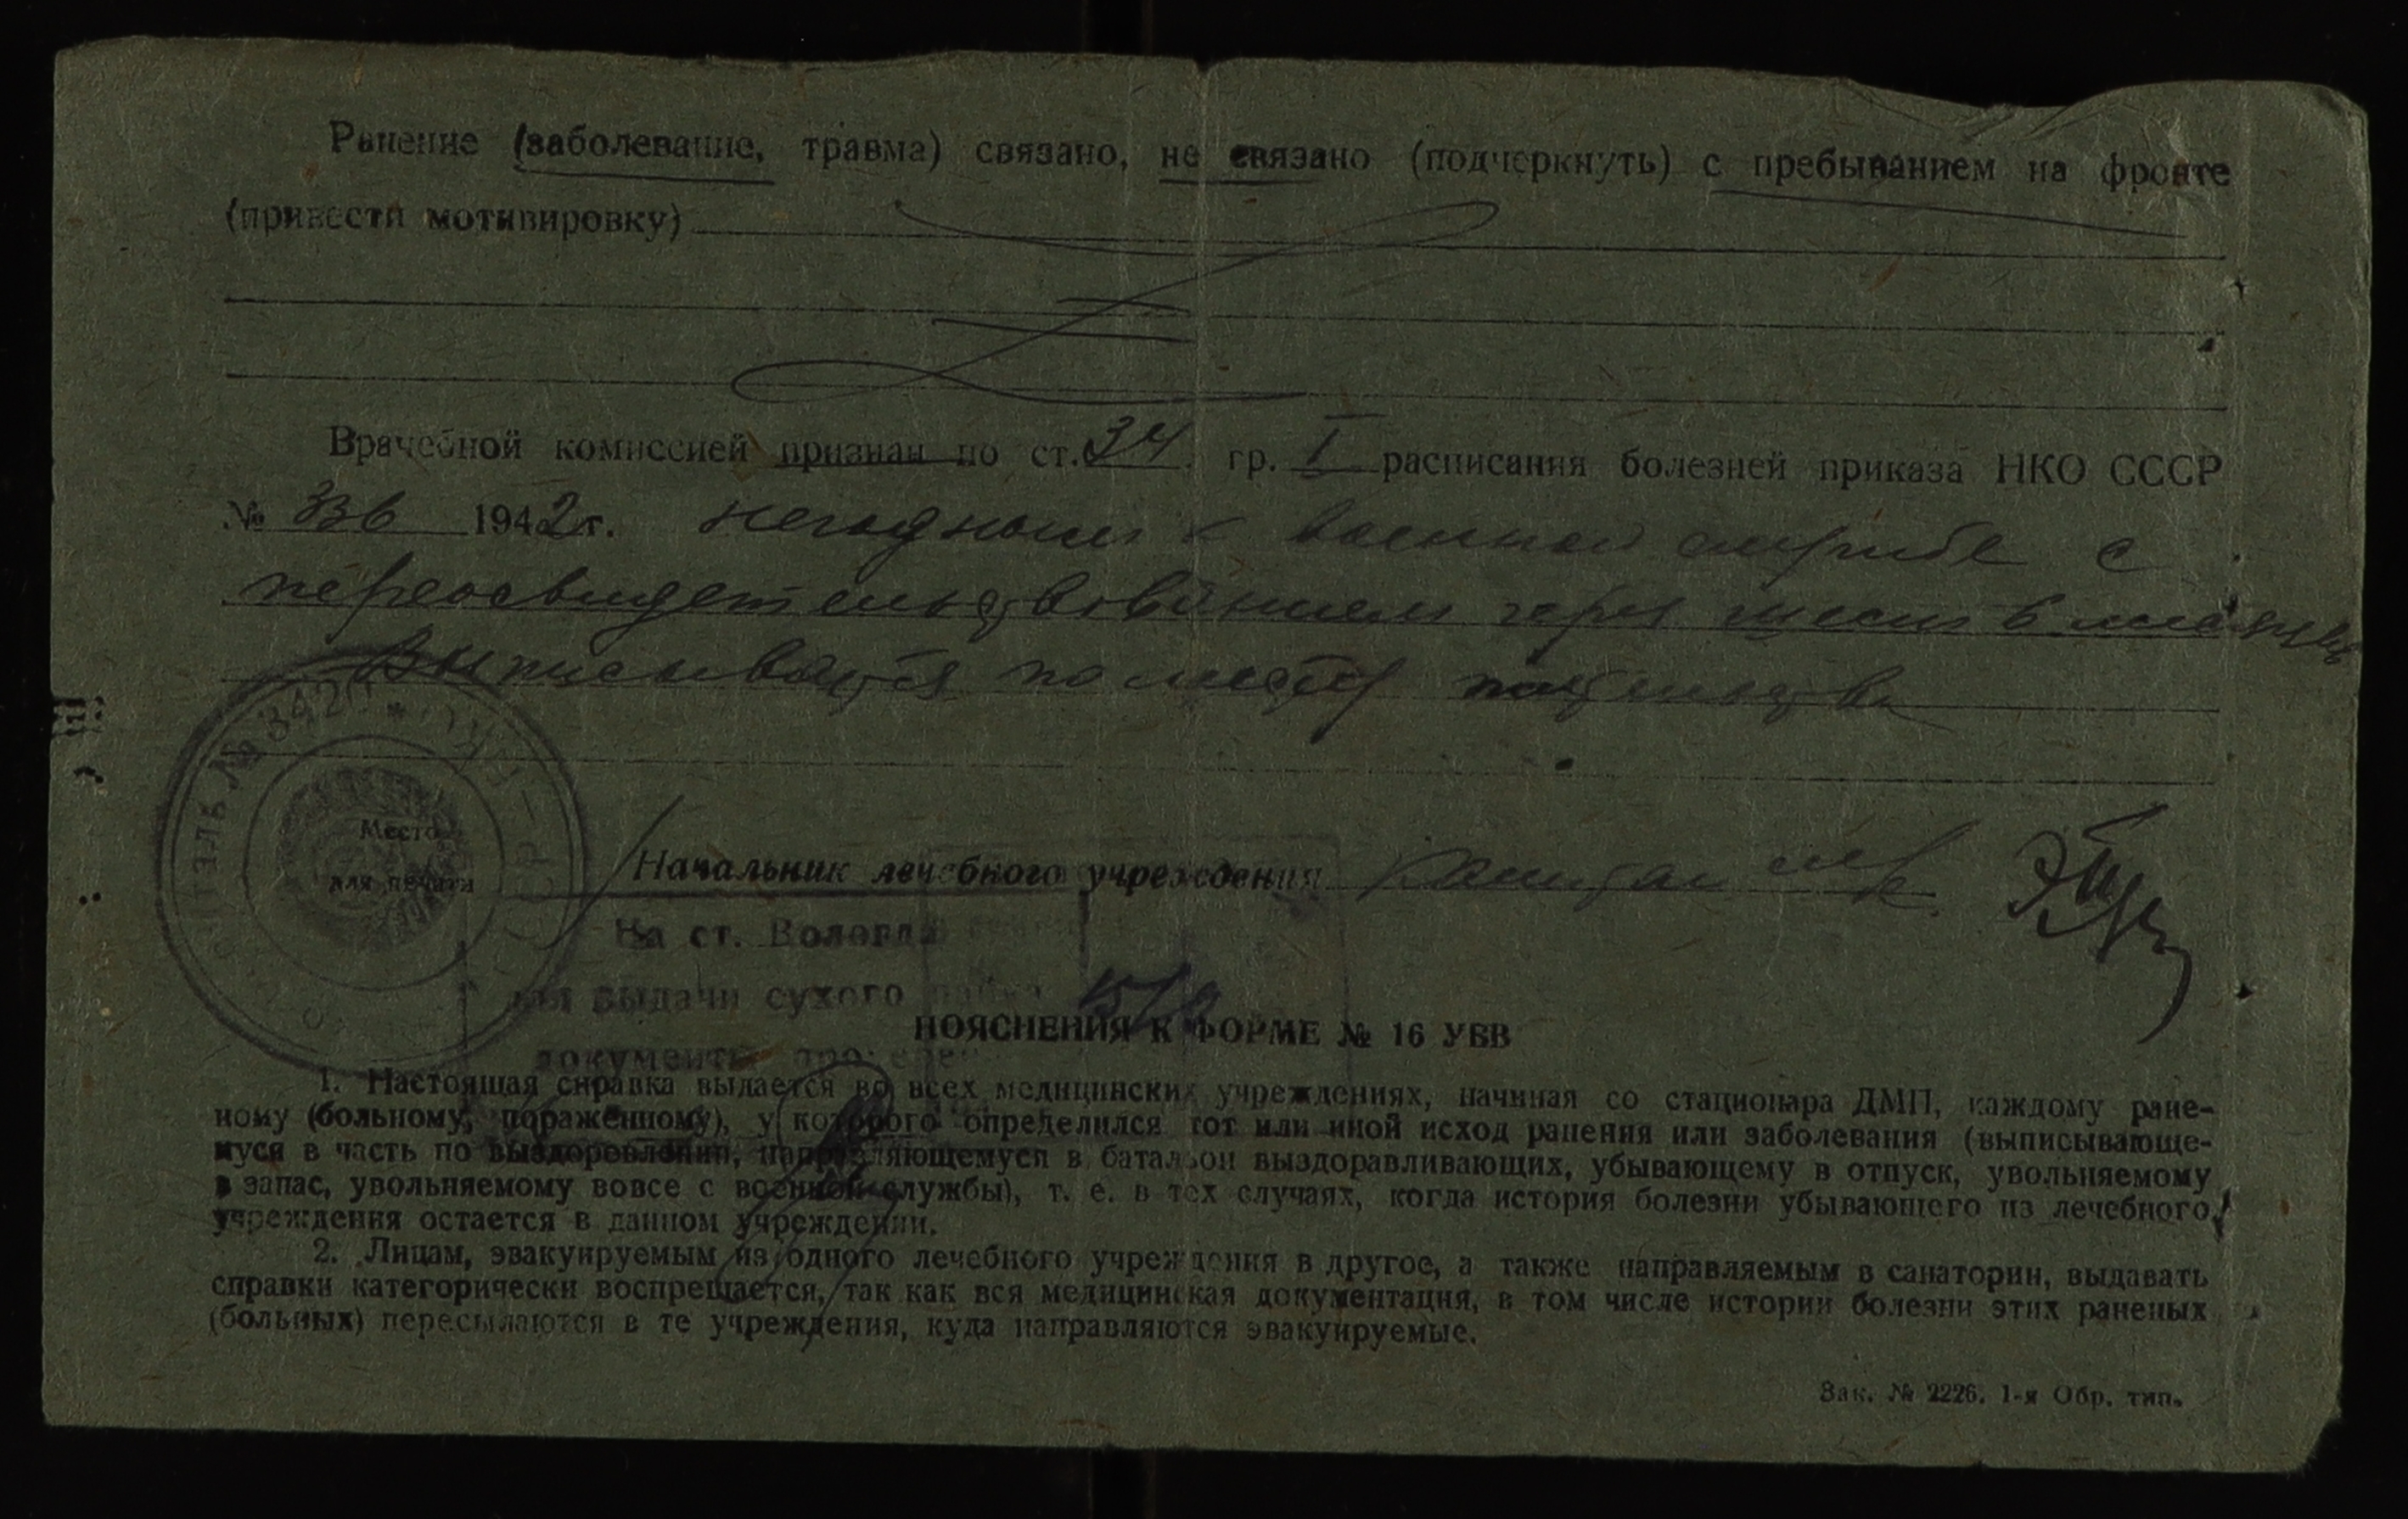 Ранение (заболевание, травма) связано, не связано (подчеркнуть) с пребыванием на фронте
(привести мотивировку)
Врачебной комиссией признан по ст. 34 гр. I расписания болезней приказа НКО СССР
№ 336 1942 г. негодным к военной службе с
переосвидетельствованием через шесть 6 месяцев
Выписывается по месту жительства
ГОСПИТАЛЬ № 3420
Место
для печати
Начальник лечебного учреждения капитан
На ст. Вологда
для выдачи сухого пайка
документы проверены
ПОЯСНЕНИЯ К ФОРМЕ № 16 УВВ
1. Настоящая справка выдается во всех медицинских учреждениях, начиная со стационара ДМП, каждому ране-
ному (больному, пораженному), у которого определился тот или иной исход ранения или заболевания (выписывающе-
муся в часть по выздоровлении, направляющемуся в батальон выздоравливающих, убывающему в отпуск, увольняемому
в запас, увольняемому вовсе с военной службы), т. е. в тех случаях, когда история болезни убывающего из лечебного
учреждения остается в данном учреждении.
2. Лицам, эвакуируемым из одного лечебного учреждения в другое, а также направляемым в санатории, выдавать
справки категорически воспрещается, так как вся медицинская документация, в том числе истории болезни этих раненых
(больных) пересылаются в те учреждения, куда направляются эвакуируемые.
Зак. № 2226. 1-я Обр. тип.